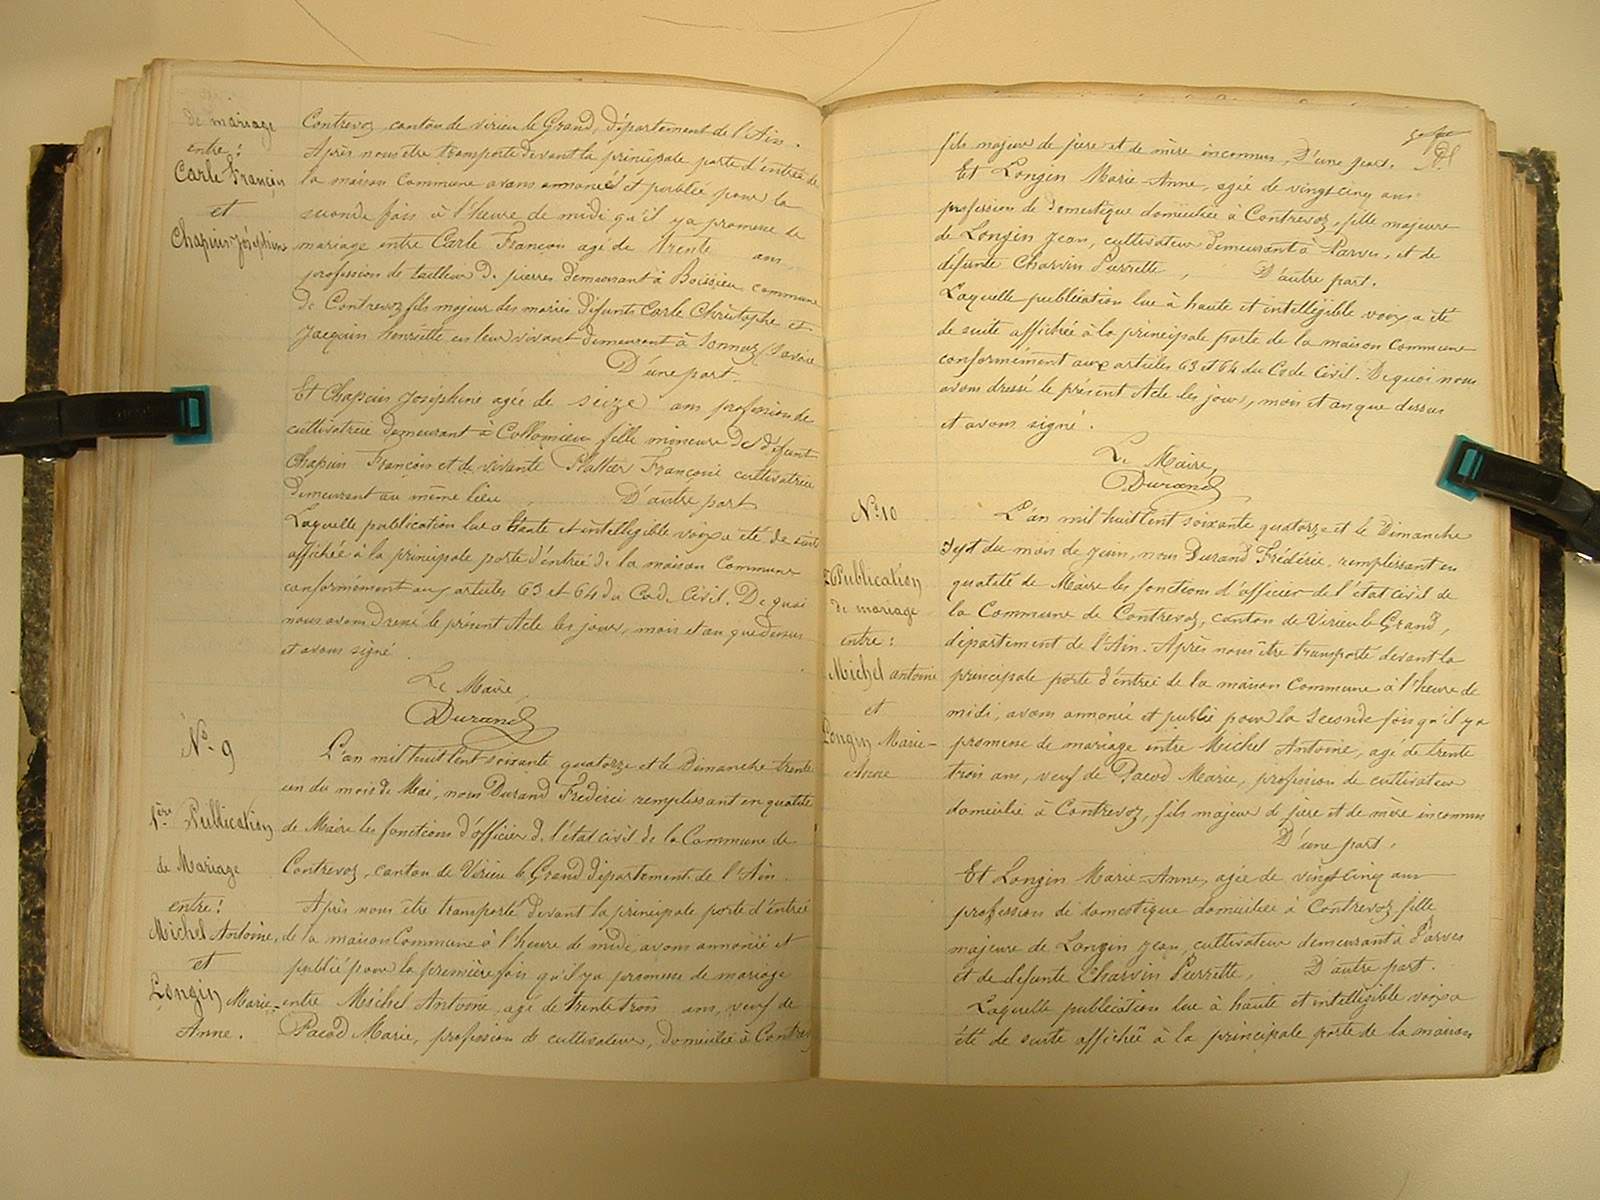 de mariage
entre :
Carle François
et
Chapuis Joséphine
Contrevoz canton de virieu le Grand, département de l'Ain.
Après nous être transporté devant la principale porte d'entrée de
la maison Commune avons annoncé et publié pour la
seconde fois à l'heure de midi qu'il y a promesse de
mariage entre Carle François agé de trente ans
profession de tailleur de pierres demeurant à Boissieu commune
de Contrevoz fils majeur des mariés défunts Carle Christophe et
Jacquin henriette en leur vivant demeurant à Sonnaz (Savoie
D'une part.
Et Chapuis Joséphine agée de seize ans profession de
cultivatrice demeurant à Collomieu fille mineure de défunt
Chapuis François et de vivante Françoise cultivatrice
demeurant au même lieu , D'autre part
Laquelle publication lue a haute et intelligible voix a été de suite
affichée à la principale porte d'entrée de la maison Commune
conformément aux articles 63 et 64 du Code Civil. De quoi
nous avons dressé le présent Acte les jour, mois et an que dessus
et avons signé .
Le Maire
Durand
N° 9
1ère Publication
de Mariage
entre :
Michel Antoine,
et
Longin Marie-
Anne.
L'an mil huit cent soixante quatorze et le Dimanche trente
un du mois de Mai, nous Durand Frédéric remplissant en qualité
de Maire les fonctions d'officier de l'état civil de la Commune de
Contrevoz, canton de Virieu le Grand département de l'Ain.
Après nous être transporté devant la principale porte d'entrée
de la maison Commune à l'heure de midi, avons annoncé et
publié pour la première fois qu'il y a promesse de mariage
entre Michel Antoine, agé de trente trois ans, veuf de
Pacod Marie, profession de cultivateur, domicilié à Contrevoz
fils majeur de père et de mère inconnus, D'une part.
Et Longin Marie-Anne, agée de vingt cinq ans
profession de domestique domiciliée à Contrevoz, fille majeure
de Longin Jean, cultivateur demeurant à Parves, et de
défunte Charvin Pierrette , D'autre part.
Laquelle publication lue à haute et intelligible voix a été
de suite affichée à la principale porte de la maison Commune
conformément aux articles 63 et 64 du Code Civil. De quoi nous
avons dressé le présent Acte les jour, mois et an que dessus
et avons signé .
Le Maire,
Durand
N° 10
2e Publication
de mariage
entre :
Michel antoine
et
Longin Marie-
Anne
L'an mil huit cent soixante quatorze et le Dimanche
sept du mois de Juin, nous Durand Frédéric, remplissant en
qualité de Maire les fonctions d'officier de l'état civil de
la Commune de Contrevoz, canton de Virieu le Grand,
département de l'Ain. Après nous être transporté devant la
principale porte d'entrée de la maison Commune à l'heure de
midi, avons annoncé et publié pour la Seconde fois qu'il y a
promesse de mariage entre Michel Antoine, agé de trente
trois ans, veuf de Pacod Marie, profession de cultivateur
domicilié à Contrevoz, fils majeur de père et de mère inconnus
D'une part.
Et Longin Marie-Anne, agée de vingt cinq ans
profession de domestique domiciliée à Contrevoz fille
majeure de Longin Jean, cultivateur demeurant à Parves
et de défunte Charvin Pierrette, D'autre part.
Laquelle publication lue à haute et intelligible voix a
été de suite affichée à la principale porte de la maison